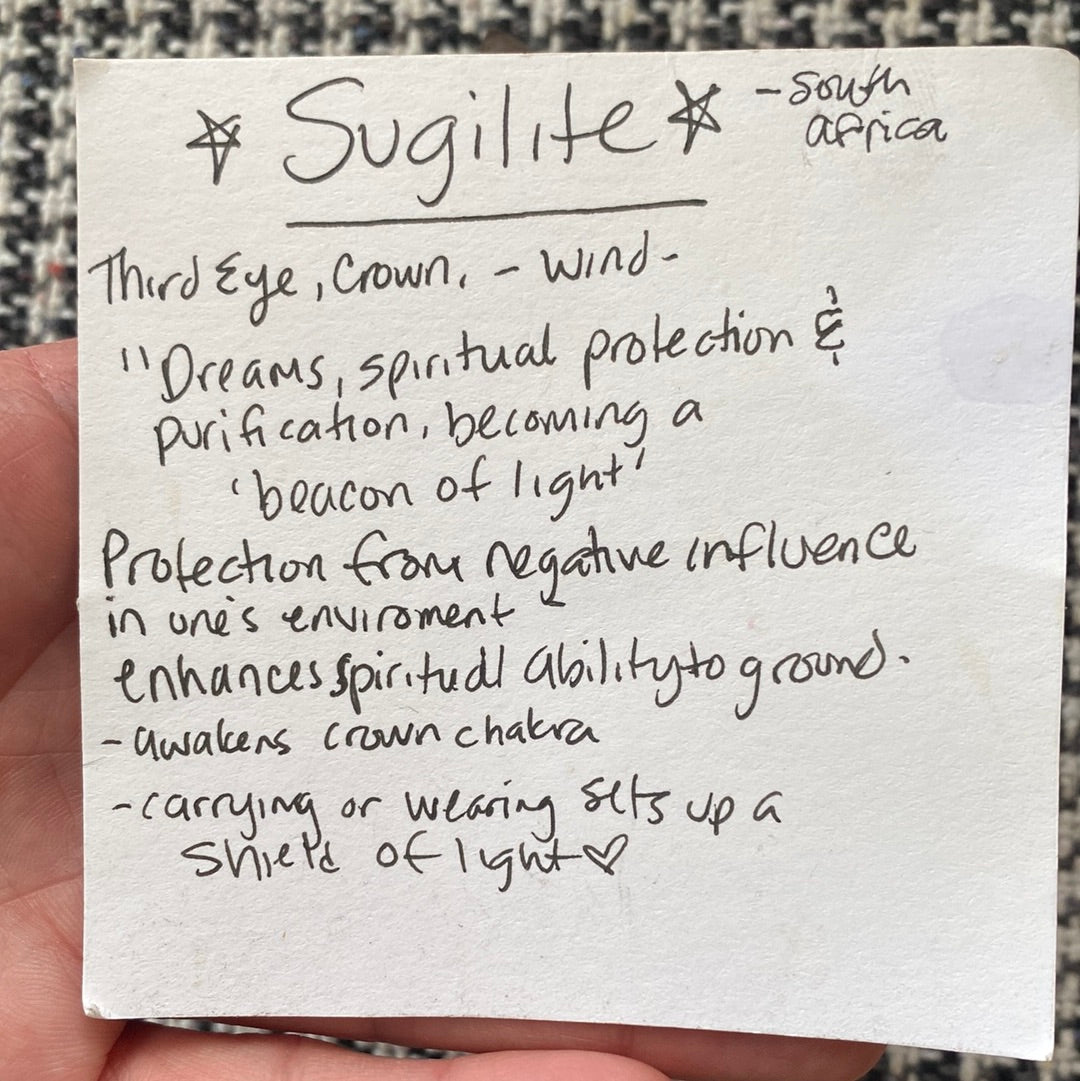 ☆ Sugilite ☆ - South
africa
Third Eye, Crown. - Wind -
"Dreams, spiritual protection &
purification, becoming a
'beacon of light'
Protection from negative influence
in one's enviroment
enhances spiritual ability to ground.
- awakens crown chakra
- carrying or wearing sets up a
shield of light ♡